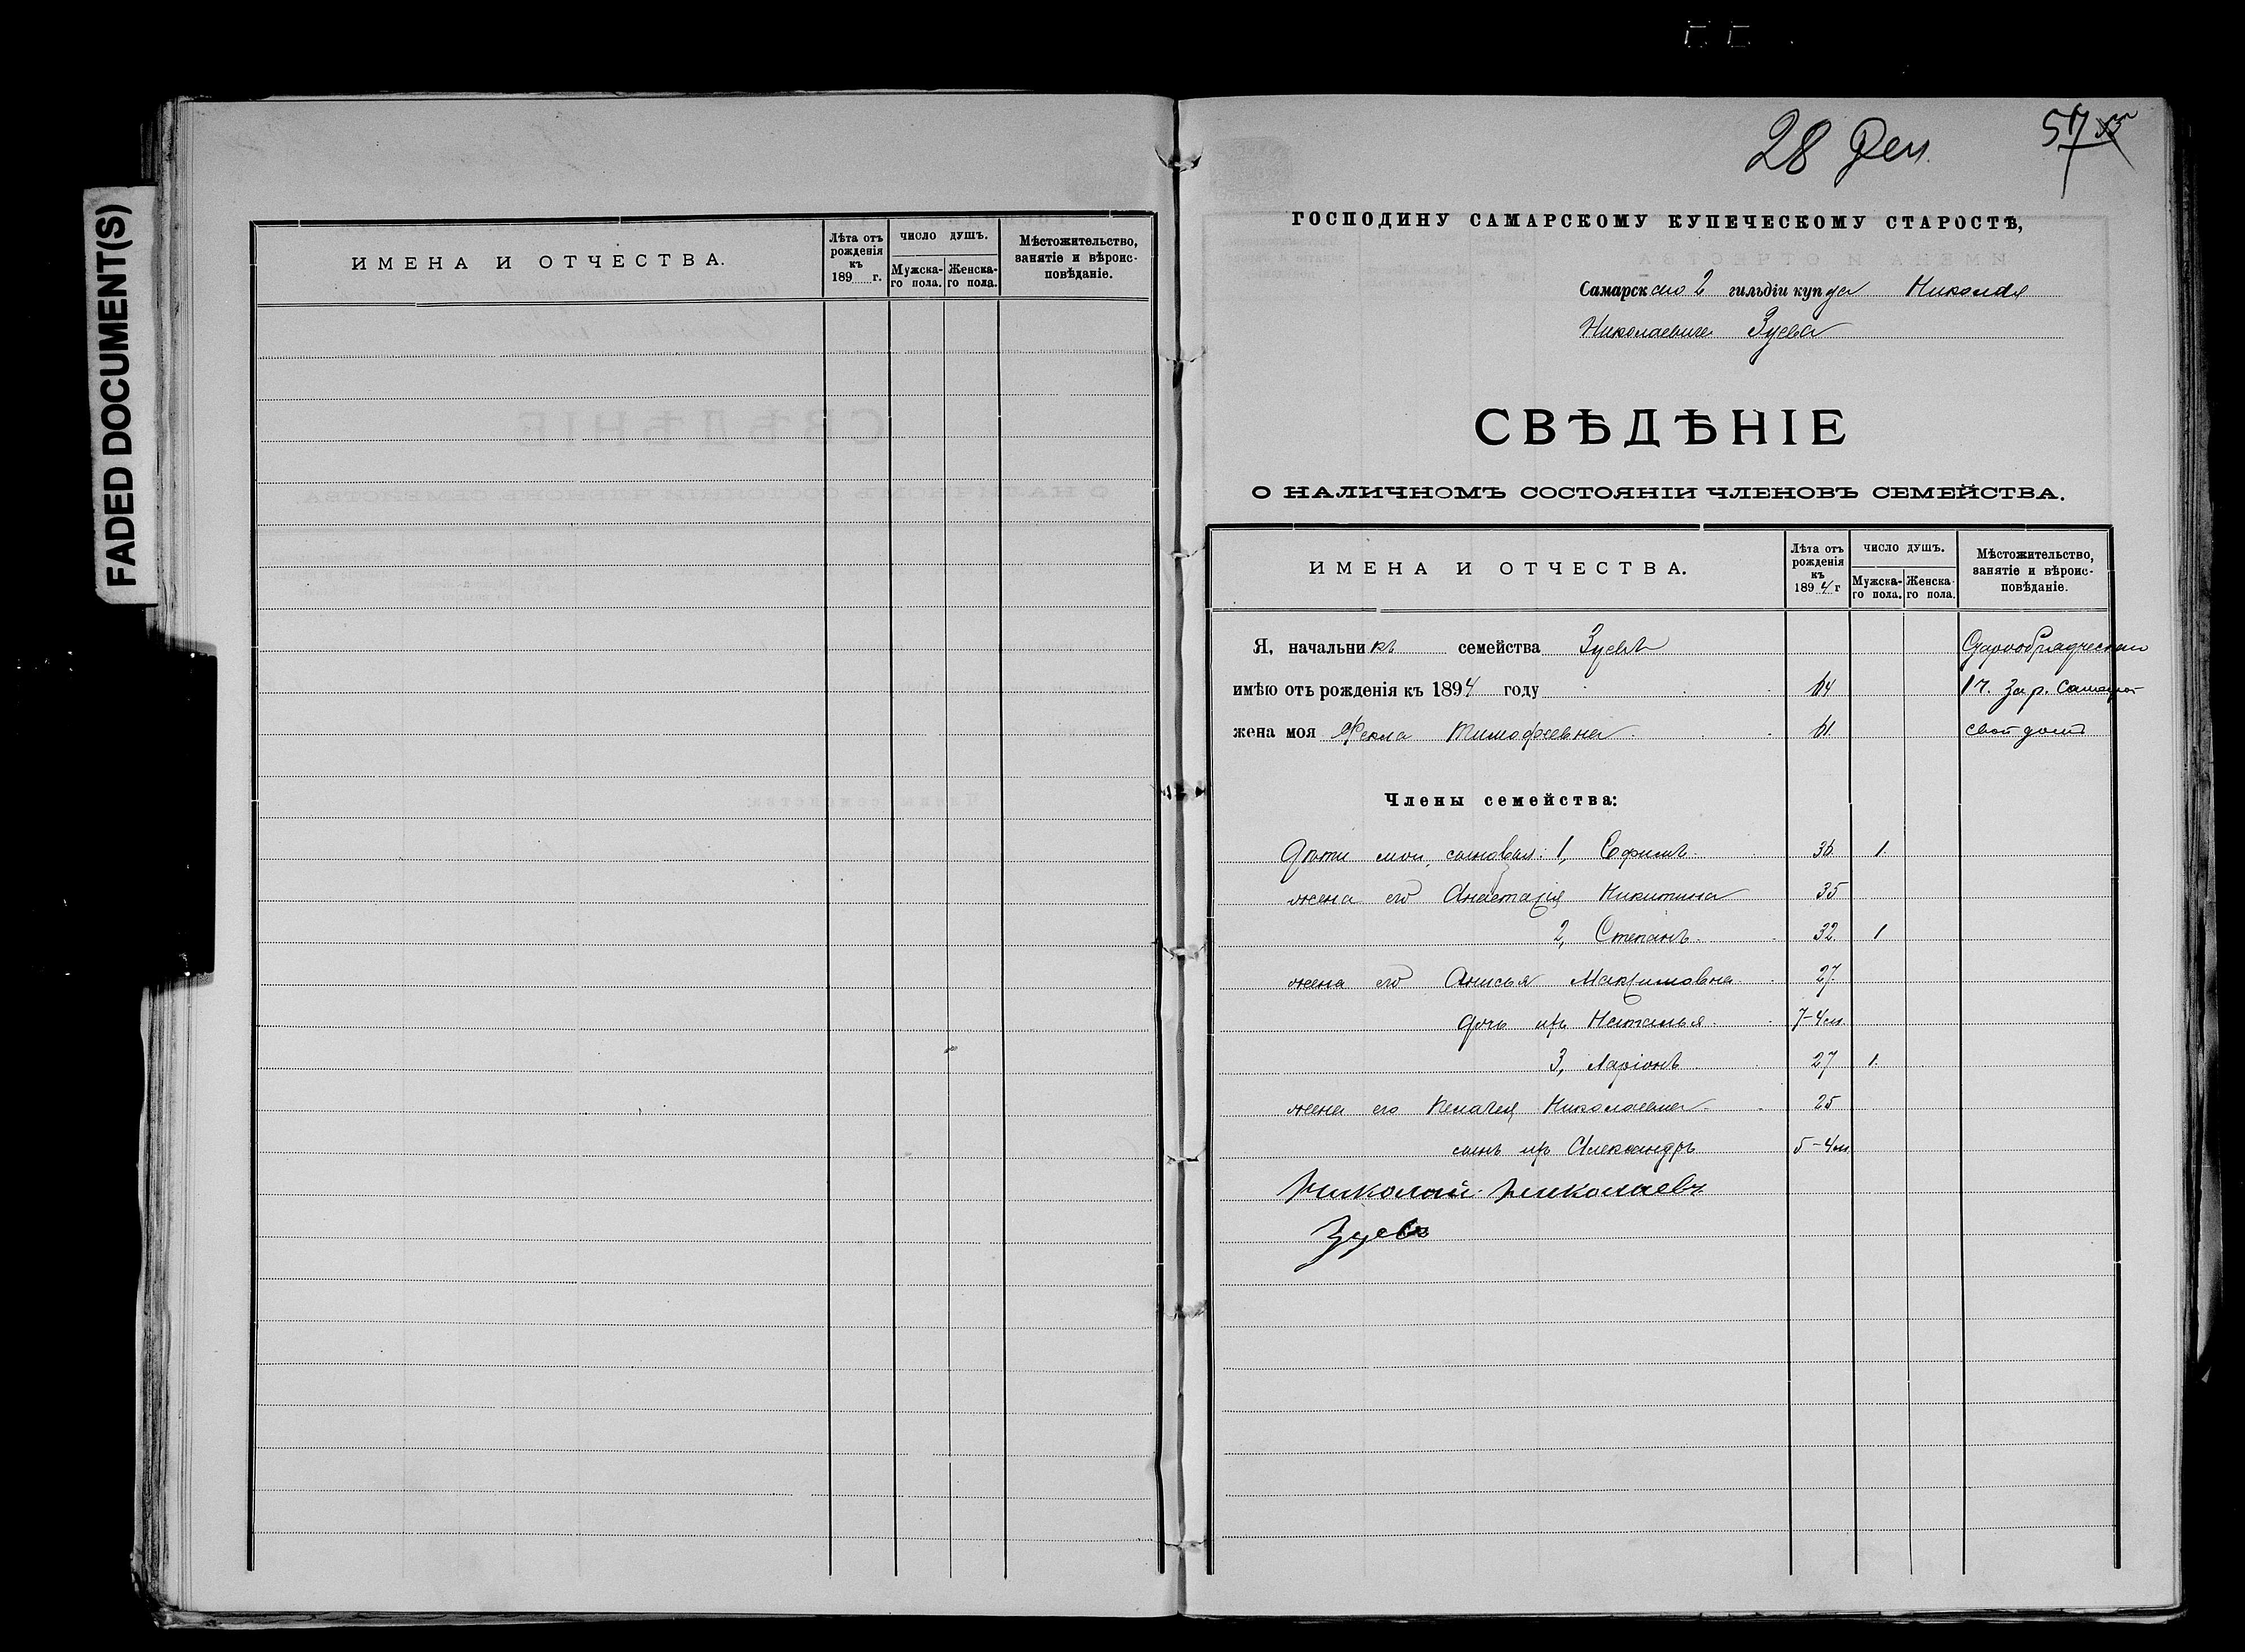 FADED DOCUMENT(S)
ИМЕНА И ОТЧЕСТВА.
Лѣта отъ рожденія къ 189 г.
ЧИСЛО ДУШЪ.
Мужска-го пола.
Женска-го пола.
Мѣстожительство, занятіе и вѣроис-повѣданіе.
28 Дек.
57 55
ГОСПОДИНУ САМАРСКОМУ КУПЕЧЕСКОМУ СТАРОСТѢ,
Самарскаго 2 гильдіи купца Николая
Николаевича Зуева
СВѢДѢНІЕ
О НАЛИЧНОМЪ СОСТОЯНІИ ЧЛЕНОВЪ СЕМЕЙСТВА.
ИМЕНА И ОТЧЕСТВА.
Лѣта отъ рожденія къ 1894 г
ЧИСЛО ДУШЪ.
Мужска-го пола.
Женска-го пола.
Мѣстожительство, занятіе и вѣроис-повѣданіе.
Я, начальникъ семейства Зуевъ
имѣю отъ рожденія къ 1894 году 64 1 ч. За р. Самарой
жена моя Фекла Тимофеевна 61 свой домъ
Члены семейства:
Дѣти мои, сыновья: 1, Ефимъ 36 1
жена его Анастасія Никитина 35
2, Степанъ 32 1
жена его Анисья Максимовна 27
дочь ихъ Наталья 7-4 м.
3, Ларіонъ 27 1
жена его Пелагея Николаевна 25
сынъ ихъ Александръ 5-4 м.
Николай Николаевъ
Зуевъ